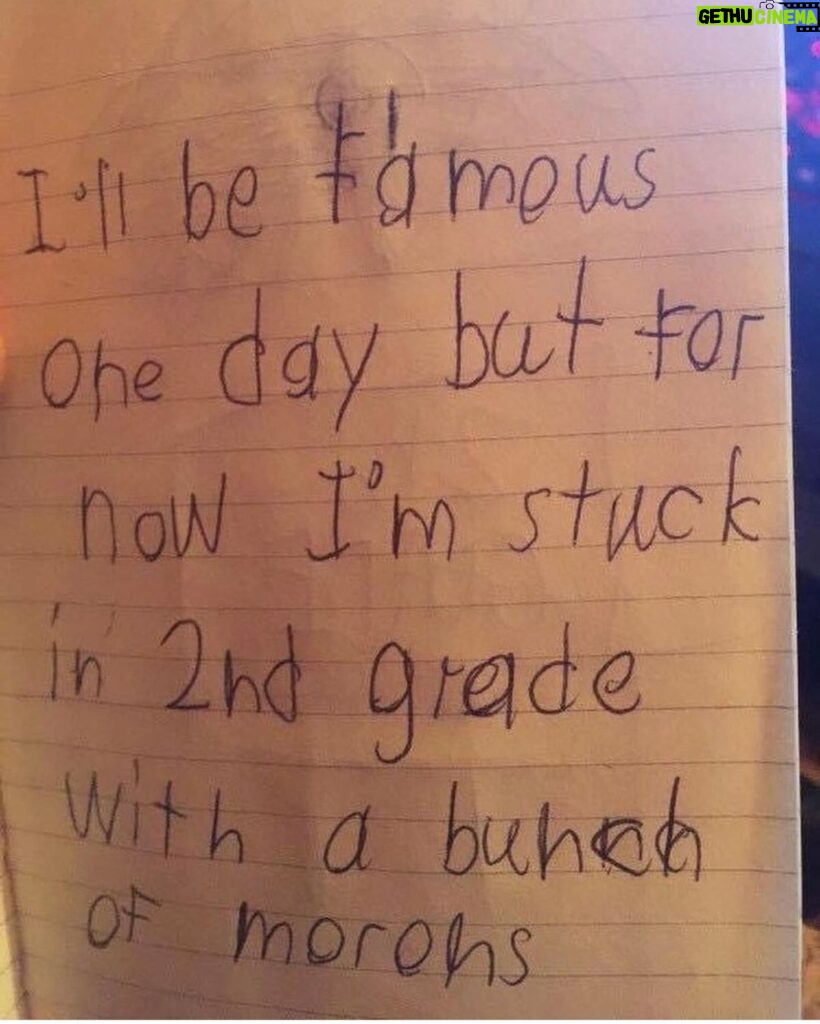 GETHU CINEMA
I'll be famous
one day but for
now I'm stuck
in 2nd grade
with a bunch
of morons